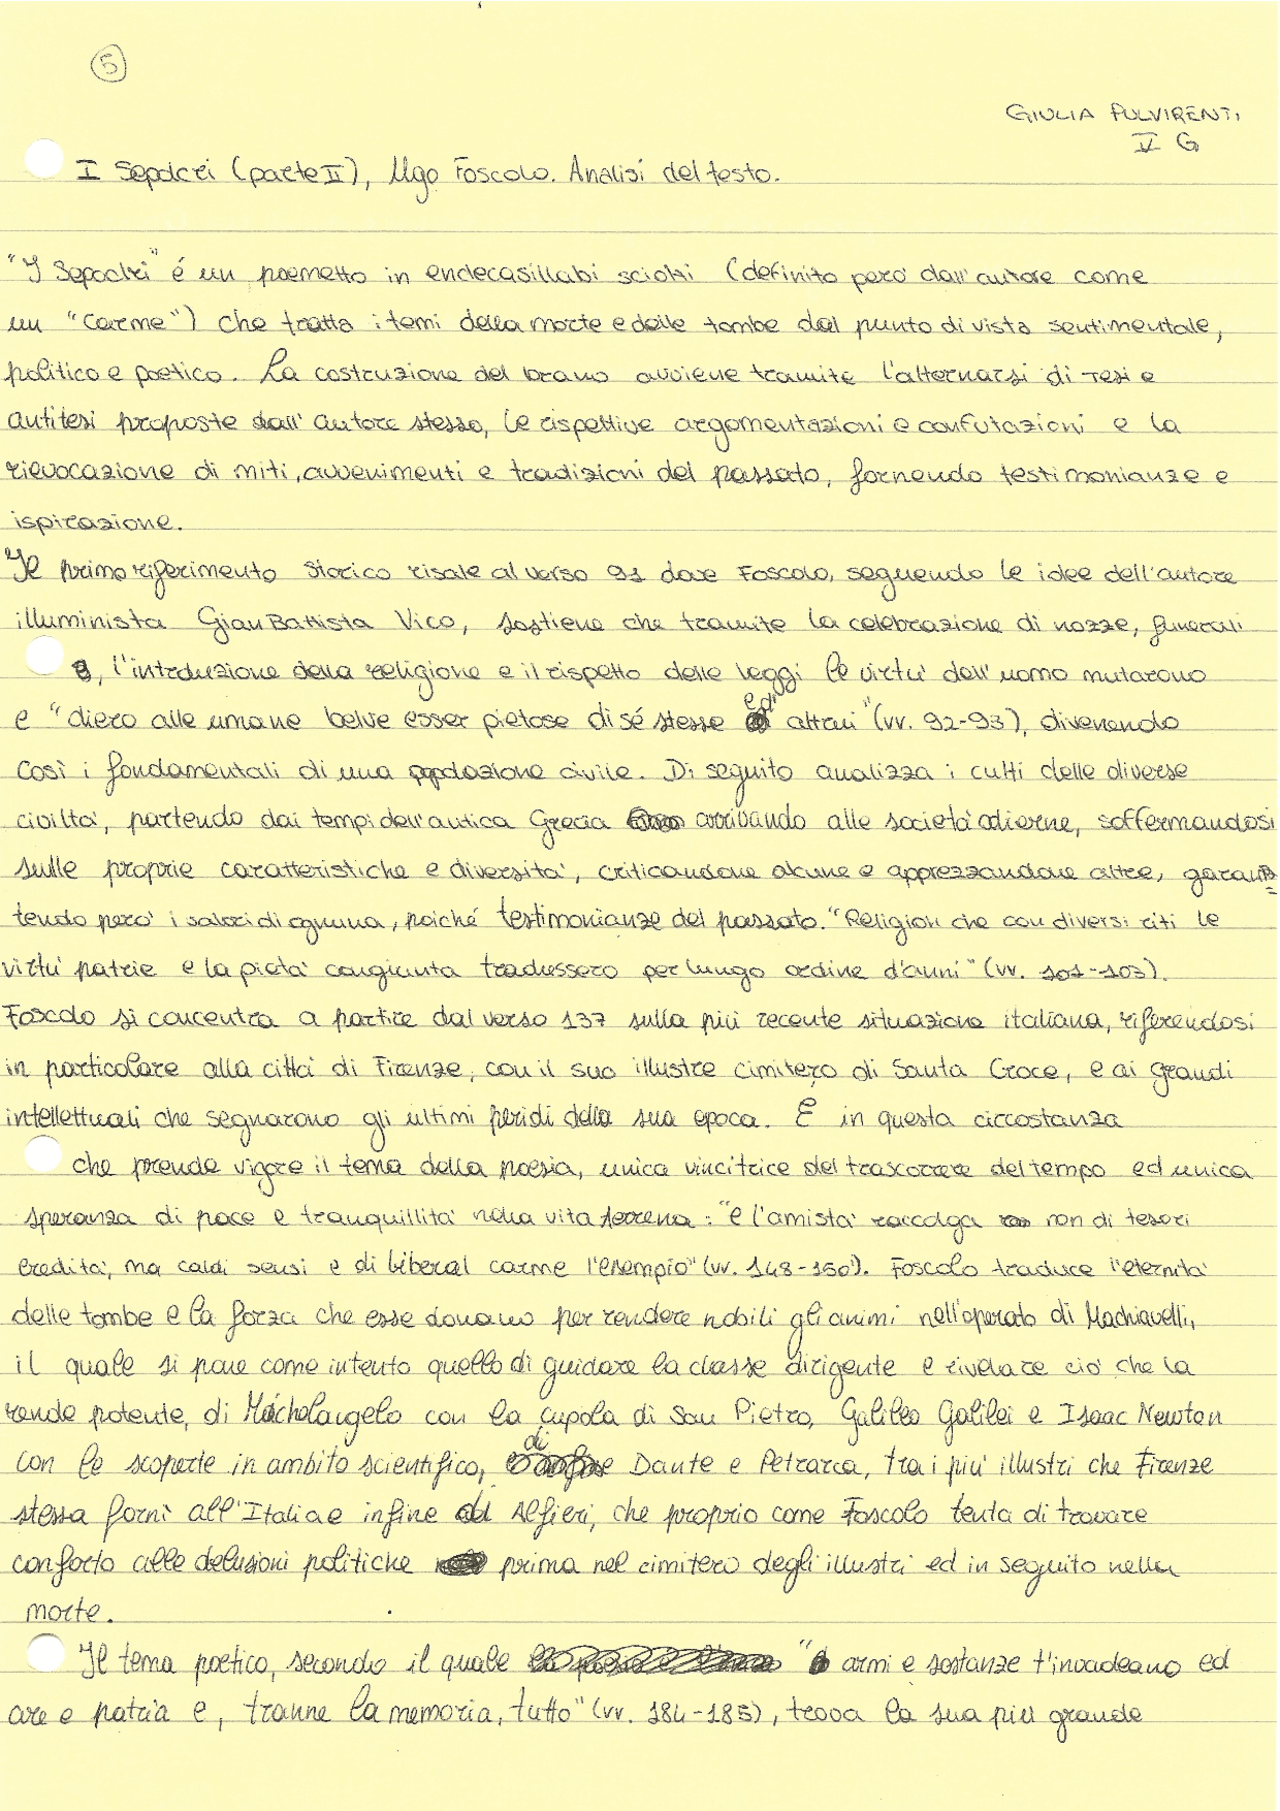 5
GIULIA PULVIRENTI
V G
I Sepolcri (parte II), Ugo Foscolo. Analisi del testo.
"I Sepolcri" é un poemetto in endecasillabi sciolti (definito pero' dall'autore come
un "carme") che tratta i temi della morte e delle tombe dal punto di vista sentimentale,
politico e poetico. La costruzione del brano avviene tramite l'alternarsi di tesi e
antitesi proposte dall'autore stesso, le rispettive argomentazioni e confutazioni e la
rievocazione di miti, avvenimenti e tradizioni del passato, fornendo testimonianze e
ispirazione.
Il primo riferimento storico risale al verso 91 dove Foscolo, seguendo le idee dell'autore
illuminista Gian Battista Vico, sostiene che tramite la celebrazione di nozze, funerali
, l'introduzione della religione e il rispetto delle leggi le virtu' dell'uomo mutarono
e "diero alle umane belve esser pietose di sé stesse ed altrui" (vv. 92-93), divenendo
così i fondamentali di una popolazione civile. Di seguito analizza i culti delle diverse
civilta', partendo dai tempi dell'antica Grecia arrivando alle societa' odierne, soffermandosi
sulle proprie caratteristiche e diversita', criticandone alcune e apprezzandone altre, garan=
tendo pero' i valori di ognuna, poiché testimonianze del passato. "Religion che con diversi riti le
virtu' patrie e la pieta' congiunta tradussero per lungo ordine d'anni" (vv. 101-103).
Foscolo si concentra a partire dal verso 137 sulla più recente situazione italiana, riferendosi
in particolare alla città di Firenze, con il suo illustre cimitero di Santa Croce, e ai grandi
intellettuali che segnarono gli ultimi peridi della sua epoca. E in questa circostanza
che prende vigore il tema della poesia, unica vincitrice del trascorrere del tempo ed unica
speranza di pace e tranquillita' nella vita terrena: "e l'amista' raccolga non di tesori
eredita', ma caldi sensi e di liberal carme l'esempio" (vv. 148-150). Foscolo traduce l'eternita'
delle tombe e la forza che esse donano per rendere nobili gli animi nell'operato di Machiavelli,
il quale si pone come intento quello di guidare la classe dirigente e rivelare cio' che la
rende potente, di Michelangelo con la cupola di San Pietro, Galileo Galilei e Isaac Newton
con le scoperte in ambito scientifico, di Dante e Petrarca, tra i piu' illustri che Firenze
stessa fornì all'Italia e infine ad Alfieri, che proprio come Foscolo tenta di trovare
conforto alle delusioni politiche prima nel cimitero degli illustri ed in seguito nella
morte.
Il tema poetico, secondo il quale " armi e sostanze t'invadeano ed
are e patria e, tranne la memoria, tutto" (vv. 184-185), trova la sua più grande